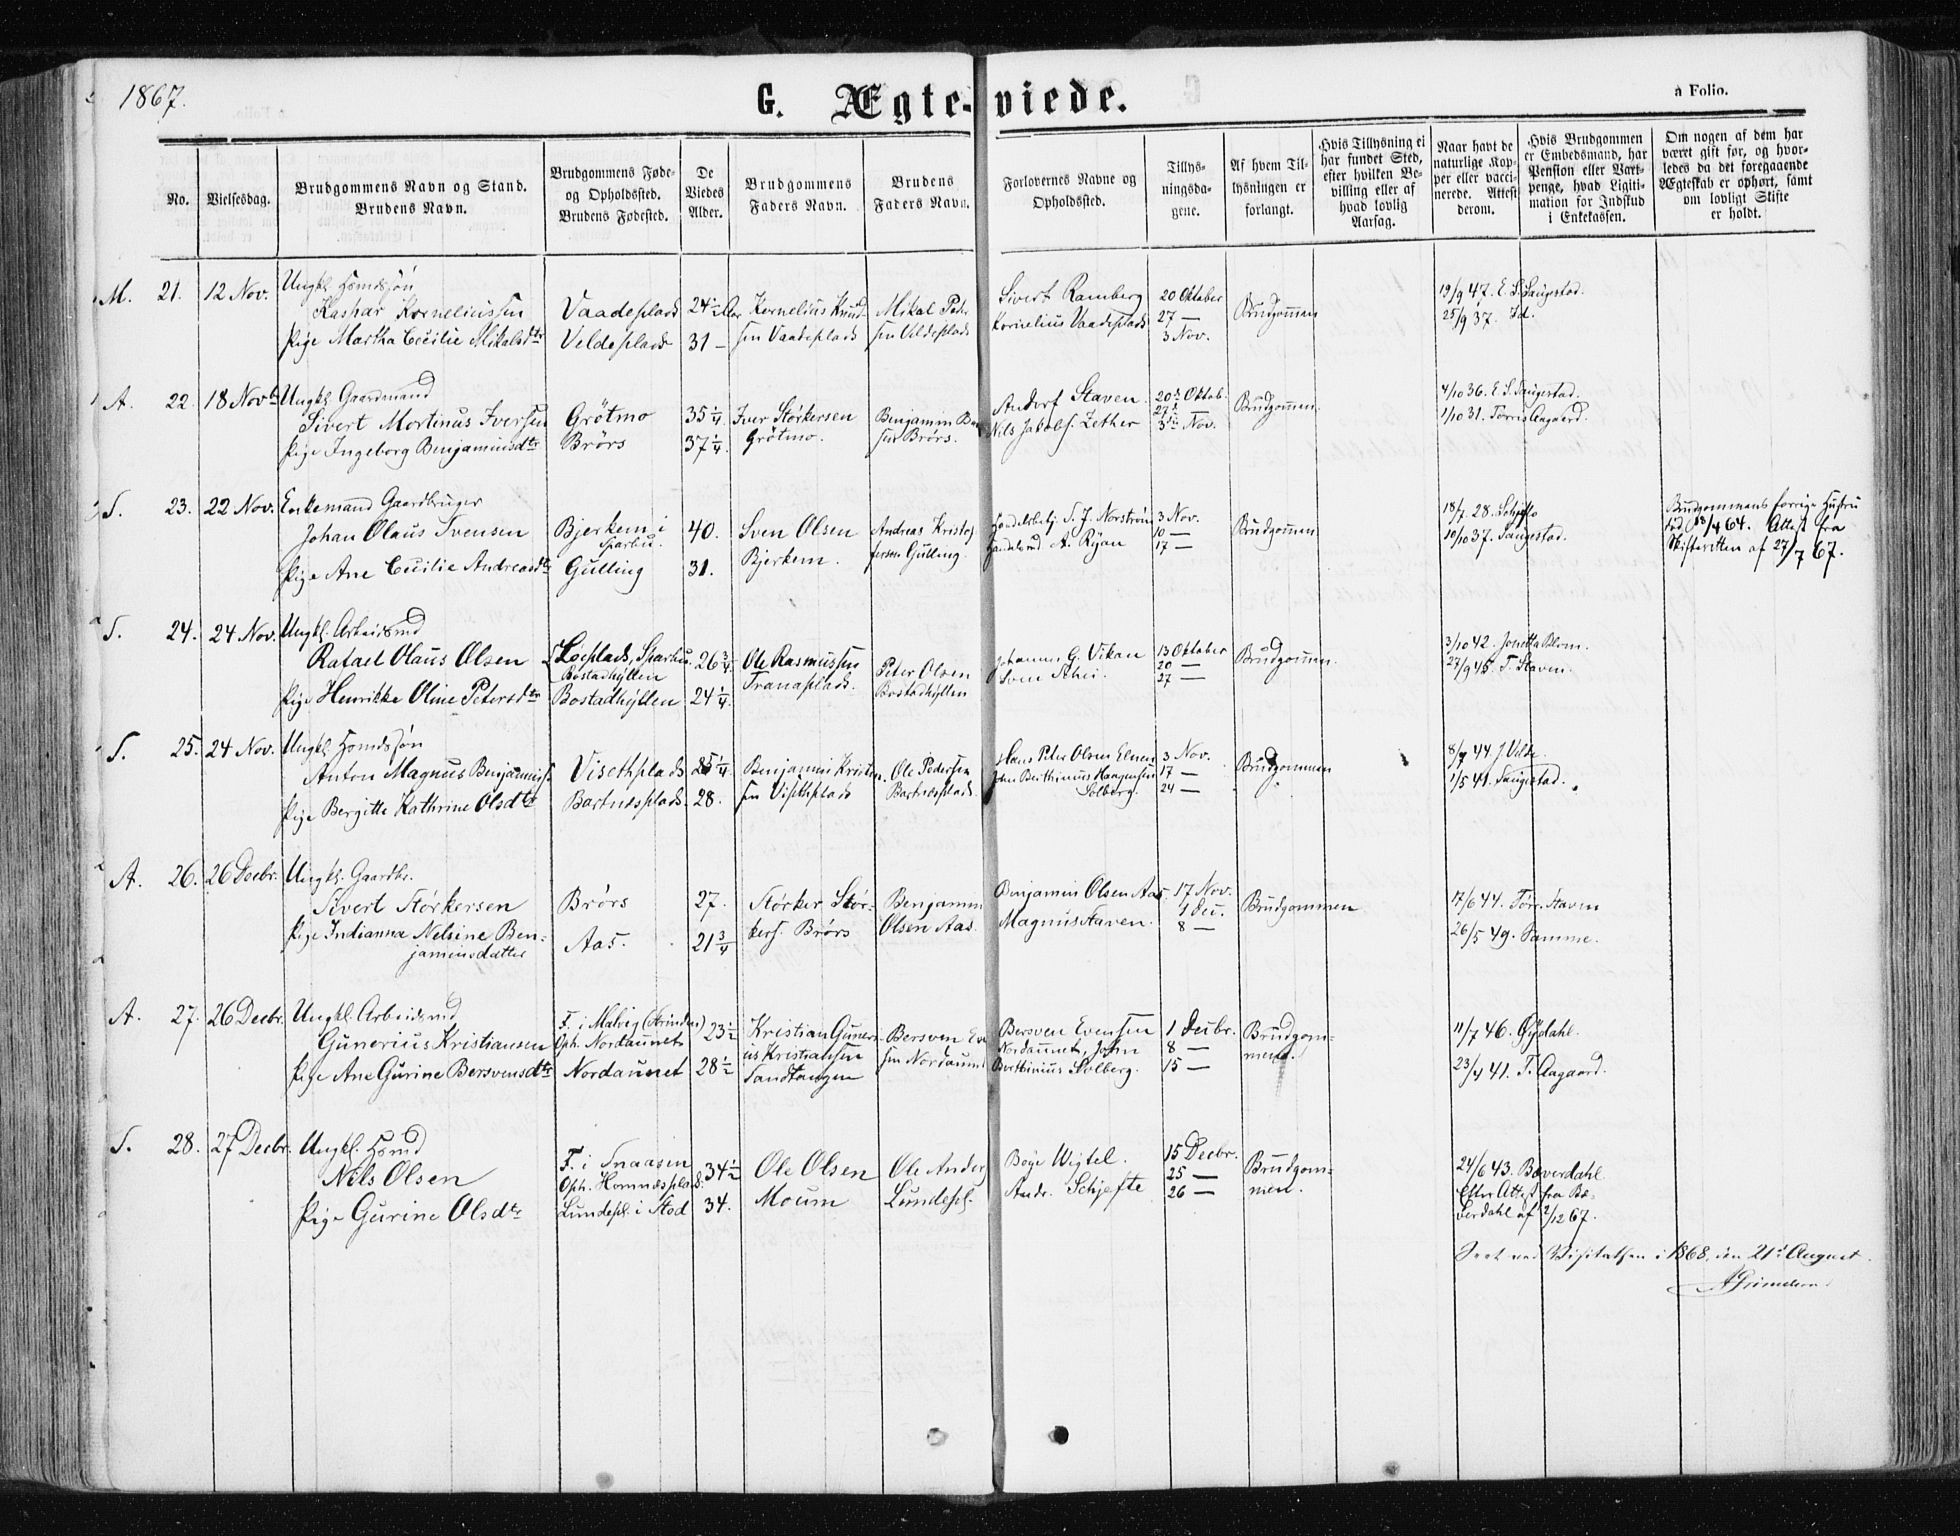 1867.
G. Ægte-viede.
a Folio.
No.
Vielsesdag.
Brudgommens Navn og Stand.
Brudens Navn.
Brudgommens Føde-
og Opholdssted.
Brudens Fødested.
De
Viedes
Alder.
Brudgommens
Faders Navn.
Brudens
Faders Navn.
Forlovernes Navne og
Opholdssted.
Tillys-
ningsda-
gene.
Af hvem Til-
lysningen er
forlangt.
Hvis Tillysning ei
har fundet Sted,
efter hvilken Be-
villing eller af
hvad lovlig
Aarsag.
Naar havt de
naturlige Kop-
per eller vacci-
nerede. Attest
derom.
Hvis Brudgommen
er Embedsmand, har
Pension eller Vart-
penge, hvad Legiti-
mation for Indskud
i Enkekassen.
Om nogen af dem har
været gift før, og hvor-
ledes da det foregaaende
Ægteskab er ophørt, samt
om lovligt Skifte
er holdt.
M. 21. 12 Nov.
Ungkl. Husmdsøn
Kaspar Korneliussen
Pige Martha Cecilie Mikalsdtr
Vaadeplads
Veldeplads
24 1/2 Aar
31 –
Kornelius Knud-
sen Vaadeplads
Mikal Peder
sen Veldeplads
Sivert Ramberg
Kornelius Vaadeplads
20 Oktober
27 —
3 Nov.
Brudgommen
19/9 47. E. S. Saugestad.
25/9 37. Id.
A. 22. 18 Novb
Ungkl. Gaardmand
Sivert Mortinus Iversen
Pige Ingeborg Benjaminsdtr
Grötmo
Brörs
35 1/4
37 1/4
Iver Störkersen
Grötmo.
Benjamin
sen Brörs.
Andorf Staven.
Nils Jakobs. Zether
20de Oktob.
27de —
3die Nov.
Brudgommen.
4/10 36. E. S. Saugestad.
1/10 31. Torris Aagaard.
S. 23. 22 Nov.
Enkemand Gaardbruger
Johan Olaus Svensen
Pige Ane Cecilie Andreasdtr
Bjerkem i
Sparbu.
Gulling
40.
31.
Sven Olsen
Bjerkem.
Andreas Kristof
fersen Gulling.
Handelsbetj. S. J. Norström
Handelsmd. A. Ryan
3 Nov.
10 —
17 —
Brudgommen
18/7 28. Schjeflo
10/10 37. Saugestad.
Brudgommens forrige Hustru
död 13/4 64. Attest fra
Skifteretten af 27/7 67.
S. 24. 24 Nov.
Ungkl. Arbeidsmd
Rafael Olaus Olsen
Pige Henrikke Oline Petersdtr
Löeplads, Sparbu.
Böstadhyllen
Bostadhyllen
26 3/4
24 1/4
Ole Rasmussen
Tranaplads.
Peter Olsen
Bostadhyllen
Johannes G. Vikan
Sven Athei.
13 Oktober
20 —
27 —
Brudgommen.
3/10 42. Jonetta Blom.
27/9 45. T. Staven.
S. 25. 24 Nov.
Ungkl. Husmdssön
Anton Magnus Benjamins.
Pige Bergitte Kathrine Olsdtr
Visethplads
Bartnesplads.
25 1/4
28.
Benjamin Kristen
sen Visethplads
Ole Pedersen
Bartnesplads.
Hans Peter Olsen Elnes
John Berthinius Haagensen
Solberg.
3 Nov.
17 —
24 —
Brudgommen
8/7 44. J. Velde.
1/5 41. Saugestad.
A. 26. 26 Decbr.
Ungkl. Gaardbr.
Sivert Störkersen
Pige Indianna Nelsine Ben-
jaminsdatter
Brörs
Aas.
27.
21 3/4
Störker Stör-
kers. Brörs
Benjamin
Olsen Aas.
Benjamin Olsen Aas.
Magnus Staven.
17 Nov.
1 Dec.
8 —
Brudgommen
17/6 44. Torr. Staven
26/5 49. Samme.
A. 27. 26 Decbr.
Ungkl. Arbeidsmd
Gunerius Kristiansen
Pige Ane Gurine Bersvensdtr
F. i Malvig (Strinden)
Oph. Nordaunet
Nordaunet
23 1/2
28 1/2
Kristian Guneri-
us Kristiansen
Sandtangen
Bersven Even
sen Nordaunet
Bersven Evensen
Nordaunet, John
Berthinius Solberg.
1 Decbr.
8 —
15 —
Brudgom-
men.
11/7 46. Gydahl.
23/4 41. T. Aagaard.
S. 28. 27 Decbr.
Ungkl. Husmd
Nils Olsen
Pige Gurine Olsdtr
F. i Snaasen
Oph. Homnesplads.
Lundepl. i Stod
34 1/2
34.
Ole Olsen
Moum
Ole Anders
Lundepl.
Boye Wigtel.
Andr. Schjefte
15 Decbr.
25 —
26 —
Brudgom-
men.
24/6 43. Beverdahl
Efter Attest fra Be-
verdahl af 2/12 67.
Seet ved Visitatsen i 1868, den 21de August.
A Grimelund.